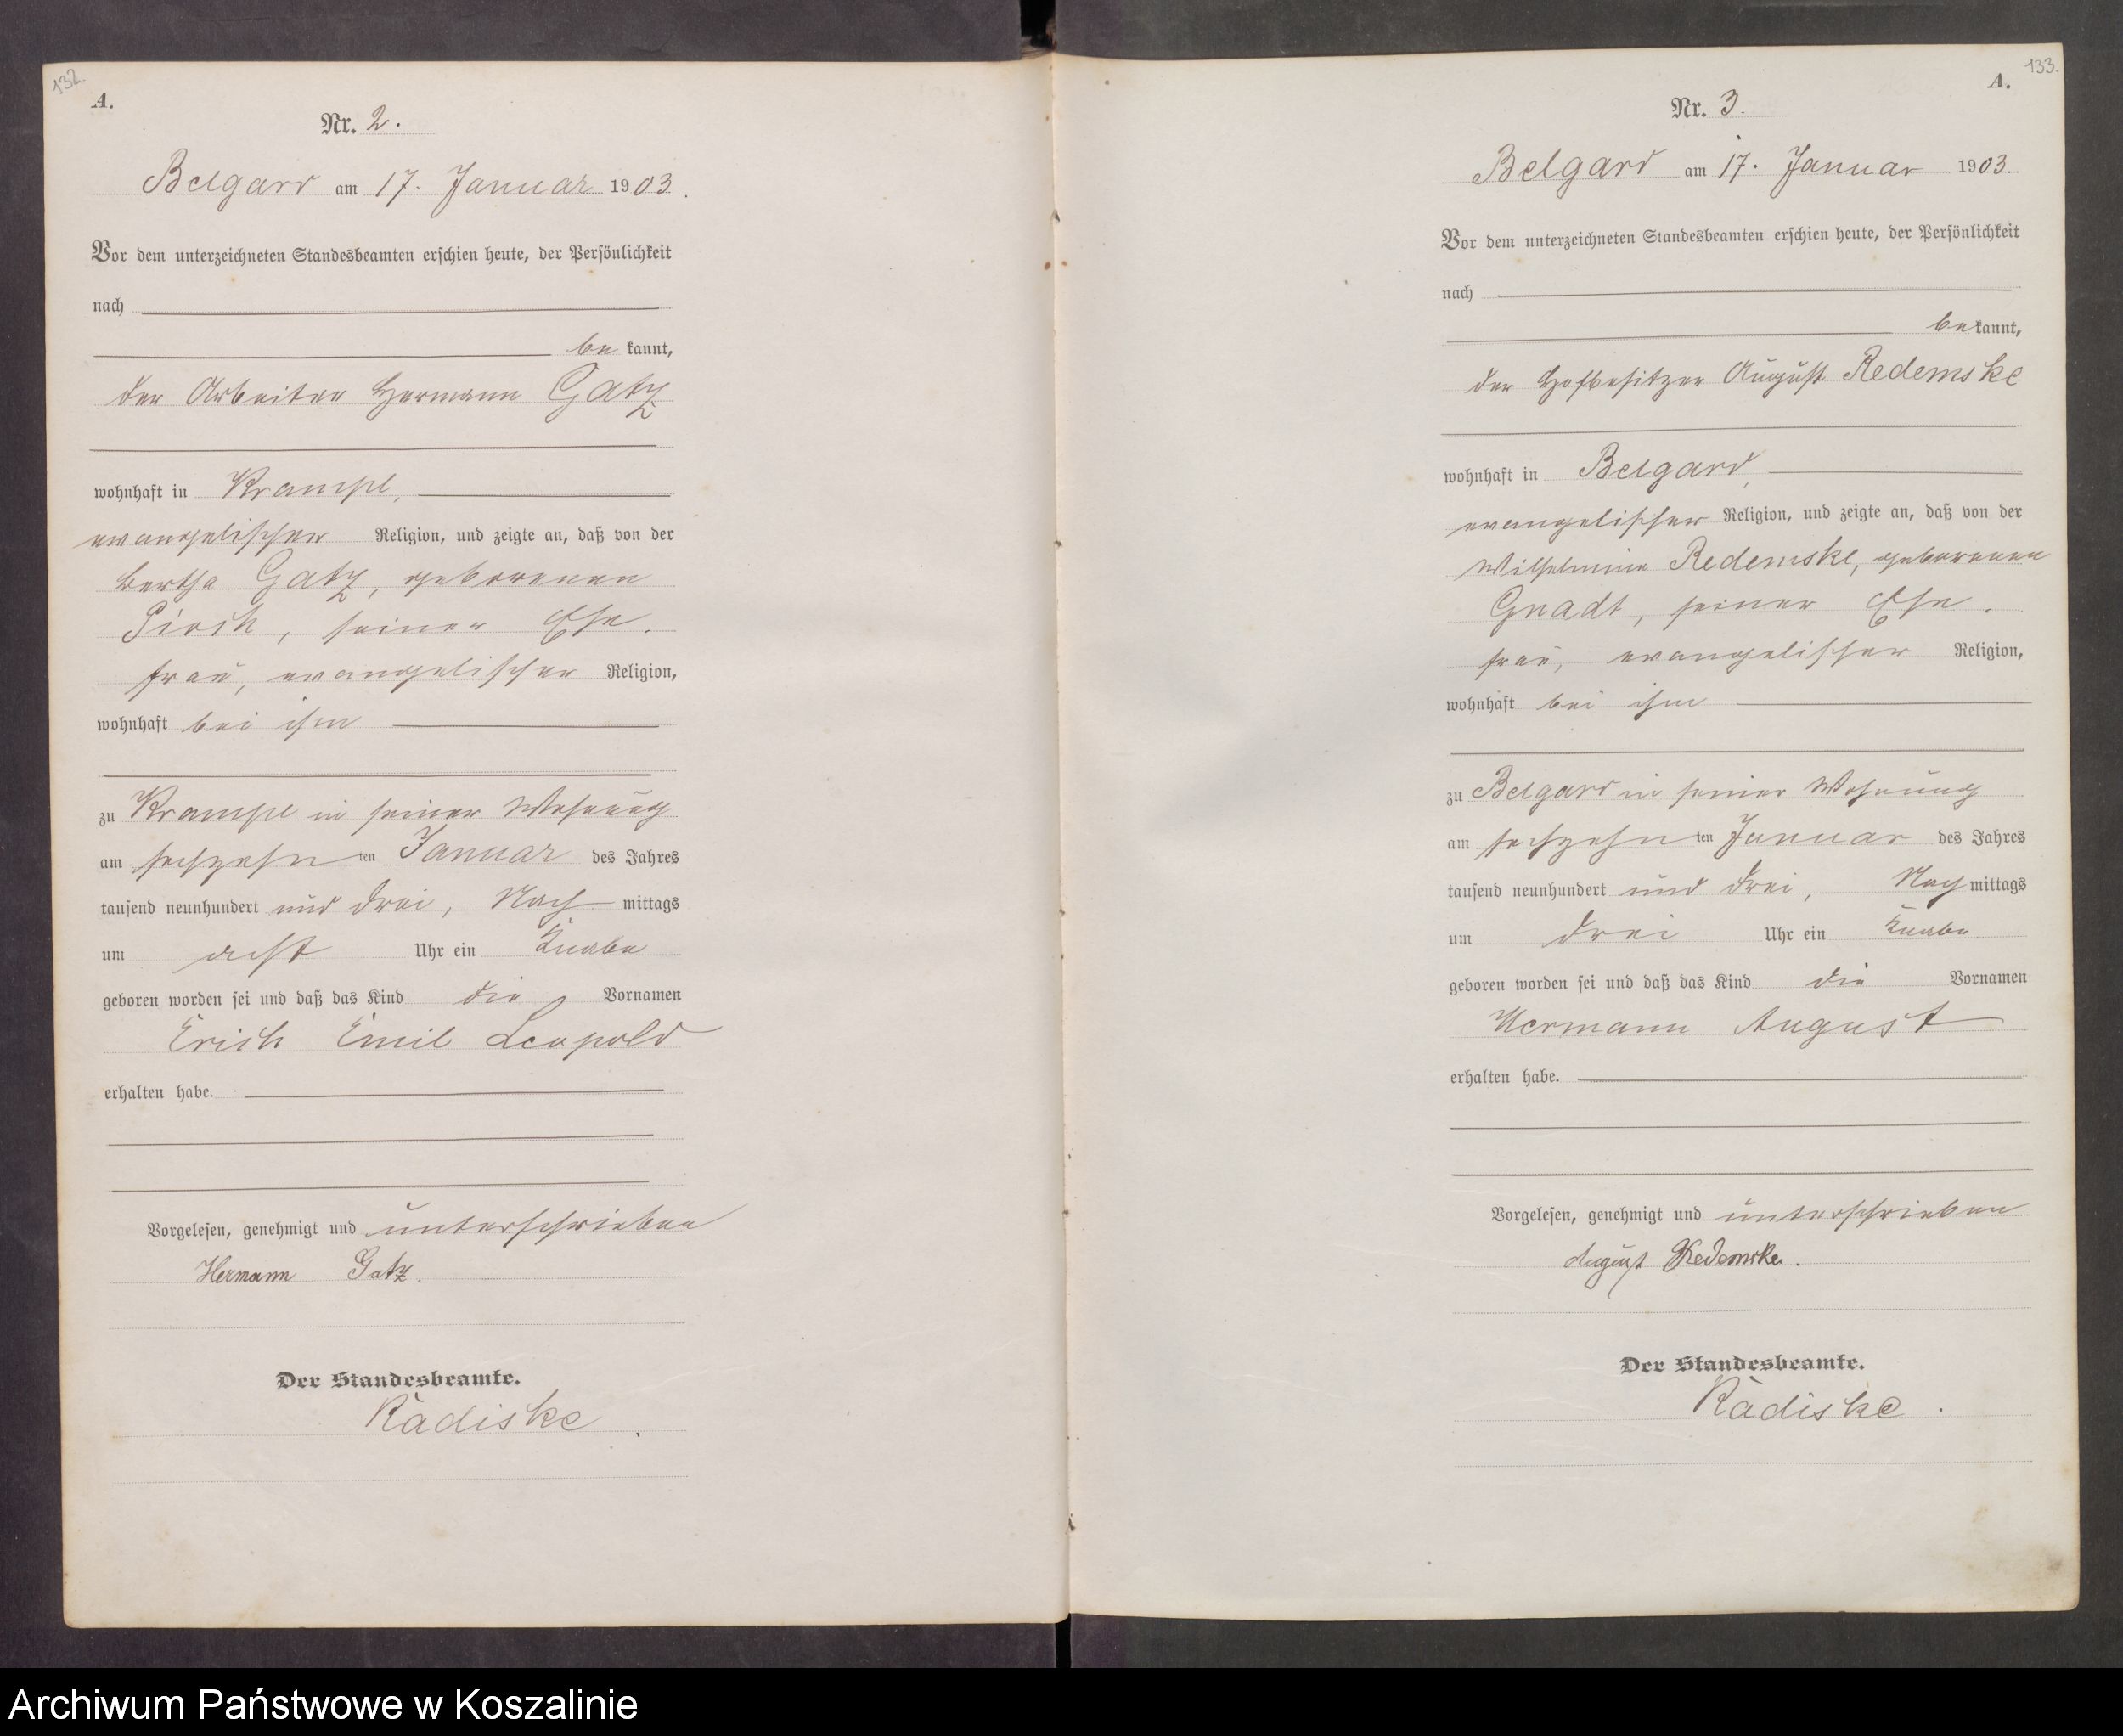 132.
A.
Nr. 2.
Belgard am 17. Januar 1903.
Vor dem unterzeichneten Standesbeamten erschien heute, der Persönlichkeit
nach
be kannt,
der Arbeiter Hermann Gatz
wohnhaft in Krampe,
evangelischer Religion, und zeigte an, daß von der
Bertha Gatz, geborenen
Pirch, seiner Ehe.
frau, evangelischer Religion,
wohnhaft bei ihm
zu Krampe in seiner Wohnung
am sechzehn ten Januar des Jahres
tausend neunhundert und drei, Nach mittags
um acht Uhr ein Knabe
geboren worden sei und daß das Kind die Vornamen
Erich Emil Leopold
erhalten habe.
Vorgelesen, genehmigt und unterschrieben
Hermann Gatz.
Der Standesbeamte.
Radiske.
133.
A.
Nr. 3.
Belgard am 17. Januar 1903.
Vor dem unterzeichneten Standesbeamten erschien heute, der Persönlichkeit
nach
be kannt,
der Hofbesitzer August Redemske
wohnhaft in Belgard,
evangelischer Religion, und zeigte an, daß von der
Wilhelmine Redemske, geborenen
Gnadt, seiner Ehe.
frau, evangelischer Religion,
wohnhaft bei ihm
zu Belgard in seiner Wohnung
am sechzehn ten Januar des Jahres
tausend neunhundert und drei, Nach mittags
um drei Uhr ein Knabe
geboren worden sei und daß das Kind die Vornamen
Hermann August
erhalten habe.
Vorgelesen, genehmigt und unterschrieben
August Redemske.
Der Standesbeamte.
Radiske.
Archiwum Państwowe w Koszalinie